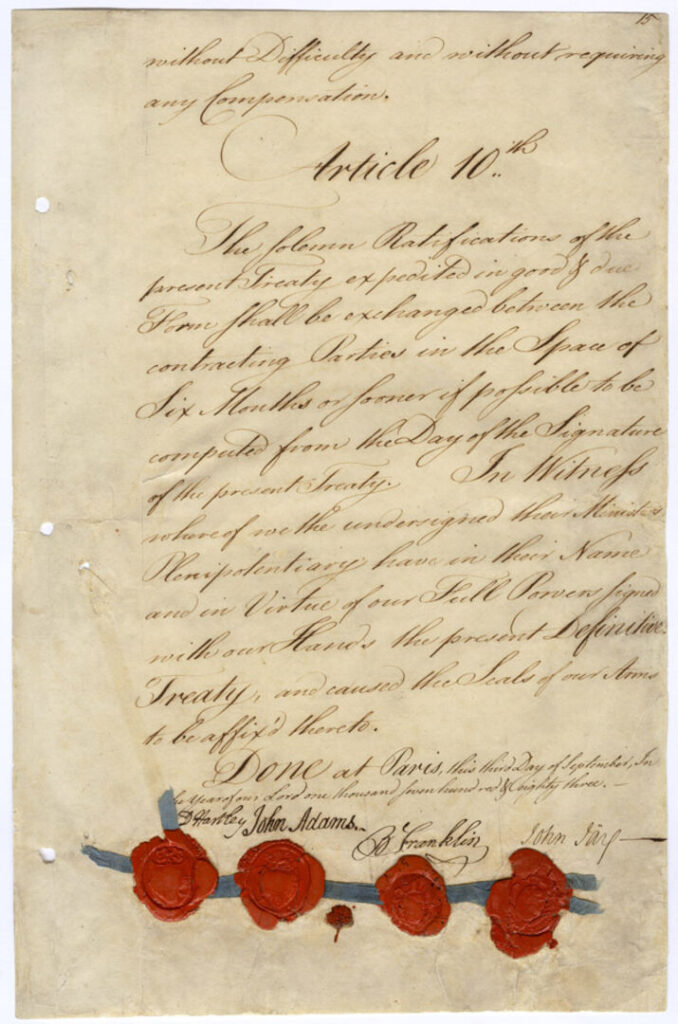 15
without Difficulty and without requiring
any Compensation.
Article 10.th
The solemn Ratifications of the
present Treaty expedited in good & due
Form shall be exchanged between the
contracting Parties in the Space of
Six Months or sooner if possible to be
computed from the Day of the Signature
of the present Treaty. In Witness
whereof we the undersigned their Ministers
Plenipotentiary have in their Name
and in Virtue of our Full Powers signed
with our Hands the present Definitive
Treaty, and caused the Seals of our Arms
to be affix'd thereto.
Done at Paris, this third Day of September, In
the Year of our Lord one thousand seven hundred & eighty three.—
D Hartley John Adams. B Franklin John Jay—